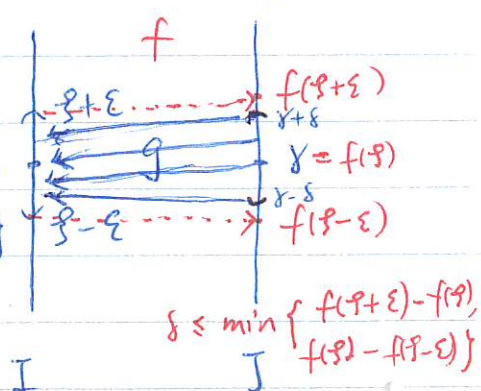 f
ξ+ε f(ξ+ε)
γ+δ
g γ = f(ξ)
γ-δ
ξ-ε f(ξ-ε)
δ ≤ min { f(ξ+ε)-f(ξ),
f(ξ) - f(ξ-ε) }
I J